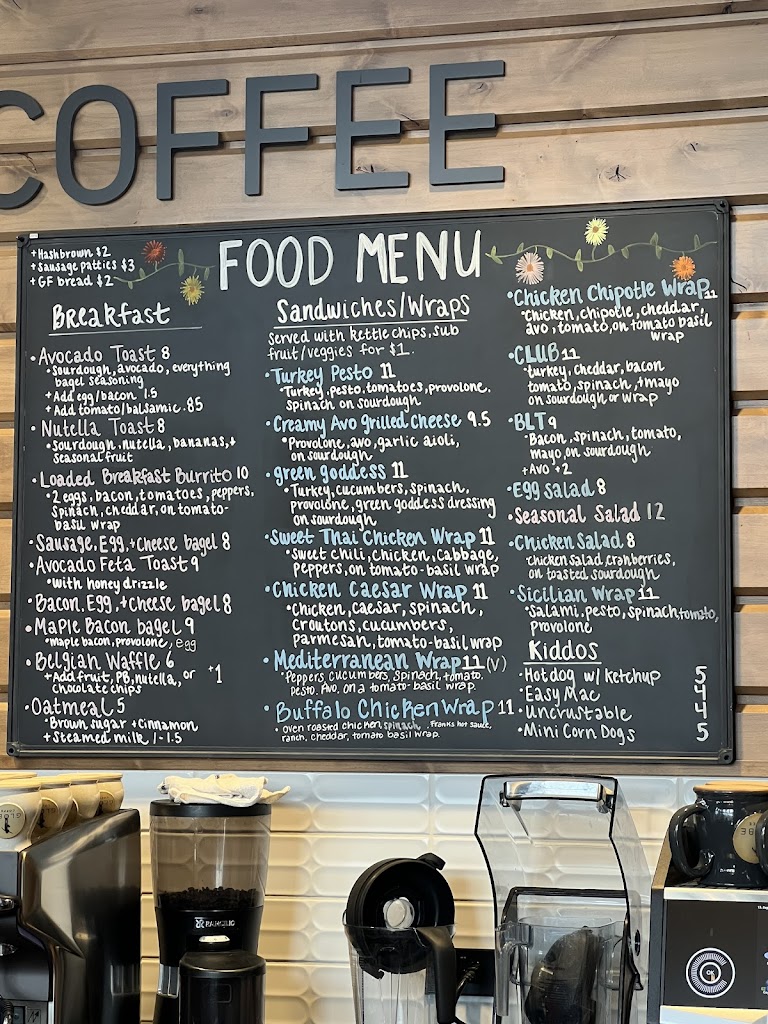 COFFEE
FOOD MENU
+ Hashbrown $2
+ Sausage patties $3
+ GF bread $2
Breakfast
• Avocado Toast 8
• Sourdough, avocado, everything
bagel seasoning
+ Add egg/bacon 1.5
+ Add tomato/balsamic .85
• Nutella Toast 8
• Sourdough, nutella, bananas, +
Seasonal fruit
• Loaded Breakfast Burrito 10
• 2 eggs, bacon, tomatoes, peppers,
Spinach, cheddar, on tomato-
basil wrap
• Sausage, Egg, + Cheese bagel 8
• Avocado Feta Toast 9
• with honey drizzle
• Bacon, Egg, + Cheese bagel 8
• Maple Bacon bagel 9
• maple bacon, provolone, egg
• Belgian Waffle 6
+ Add fruit, PB, nutella, or
chocolate chips +1
• Oatmeal 5
• Brown sugar + Cinnamon
+ Steamed milk 1-1.5
Sandwiches/Wraps
Served with kettle chips, sub
fruit/veggies for $1.
• Turkey Pesto 11
• Turkey, pesto, tomatoes, provolone,
Spinach on sourdough
• Creamy Avo grilled cheese 9.5
• Provolone, avo, garlic aioli,
on sourdough
• green goddess 11
• Turkey, cucumbers, spinach,
provolone, green goddess dressing
on sourdough
• Sweet Thai Chicken Wrap 11
• Sweet chili, chicken, cabbage,
peppers, on tomato-basil wrap
• Chicken Caesar Wrap 11
• Chicken, caesar, spinach,
croutons, cucumbers,
parmesan, tomato-basil wrap
• Mediterranean Wrap 11 (V)
• Peppers, cucumbers, spinach, tomato,
pesto, Avo, on a tomato-basil wrap.
• Buffalo Chicken Wrap 11
• oven roasted chicken, spinach, Franks hot sauce,
ranch, cheddar, tomato basil wrap.
• Chicken Chipotle Wrap 11
• Chicken, chipotle, cheddar,
avo, tomato, on tomato basil
wrap
• CLUB 11
• turkey, cheddar, bacon
tomato, spinach, + mayo
on sourdough or wrap
• BLT 9
• Bacon, spinach, tomato,
Mayo, on sourdough
+ Avo +2
• Egg Salad 8
• Seasonal Salad 12
• Chicken Salad 8
chicken salad, cranberries,
on toasted sourdough
• Sicilian Wrap 11
• Salami, pesto, spinach, tomato,
Provolone
Kiddos
• Hotdog w/ ketchup 5
• Easy Mac 4
• Uncrustable 4
• Mini Corn Dogs 5
RANCILIO
OK